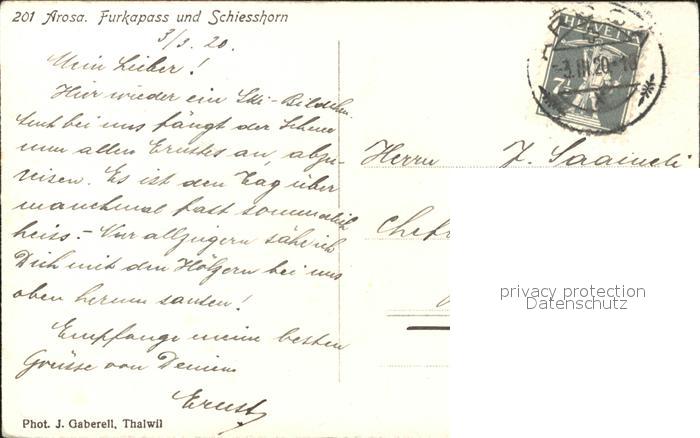 201 Arosa. Furkapass und Schiesshorn
3/3. 20.
Mein Lieber!
Hier wieder ein Ski-Bildchen.
bei uns fängt der Schnee
nun allen Ernstes an, abzu-
reisen. Es ist den Tag über
manchmal fast sommerlich
heiss. - Nur allzugern sähe ich
Dich mit den Hölzern bei uns
oben herum sausen!
Empfange meine besten
Grüsse von Deinem
Ernst
Phot. J. Gaberell, Thalwil
HELVETIA
3.III.20
Herrn J.
Chef
privacy protection
Datenschutz